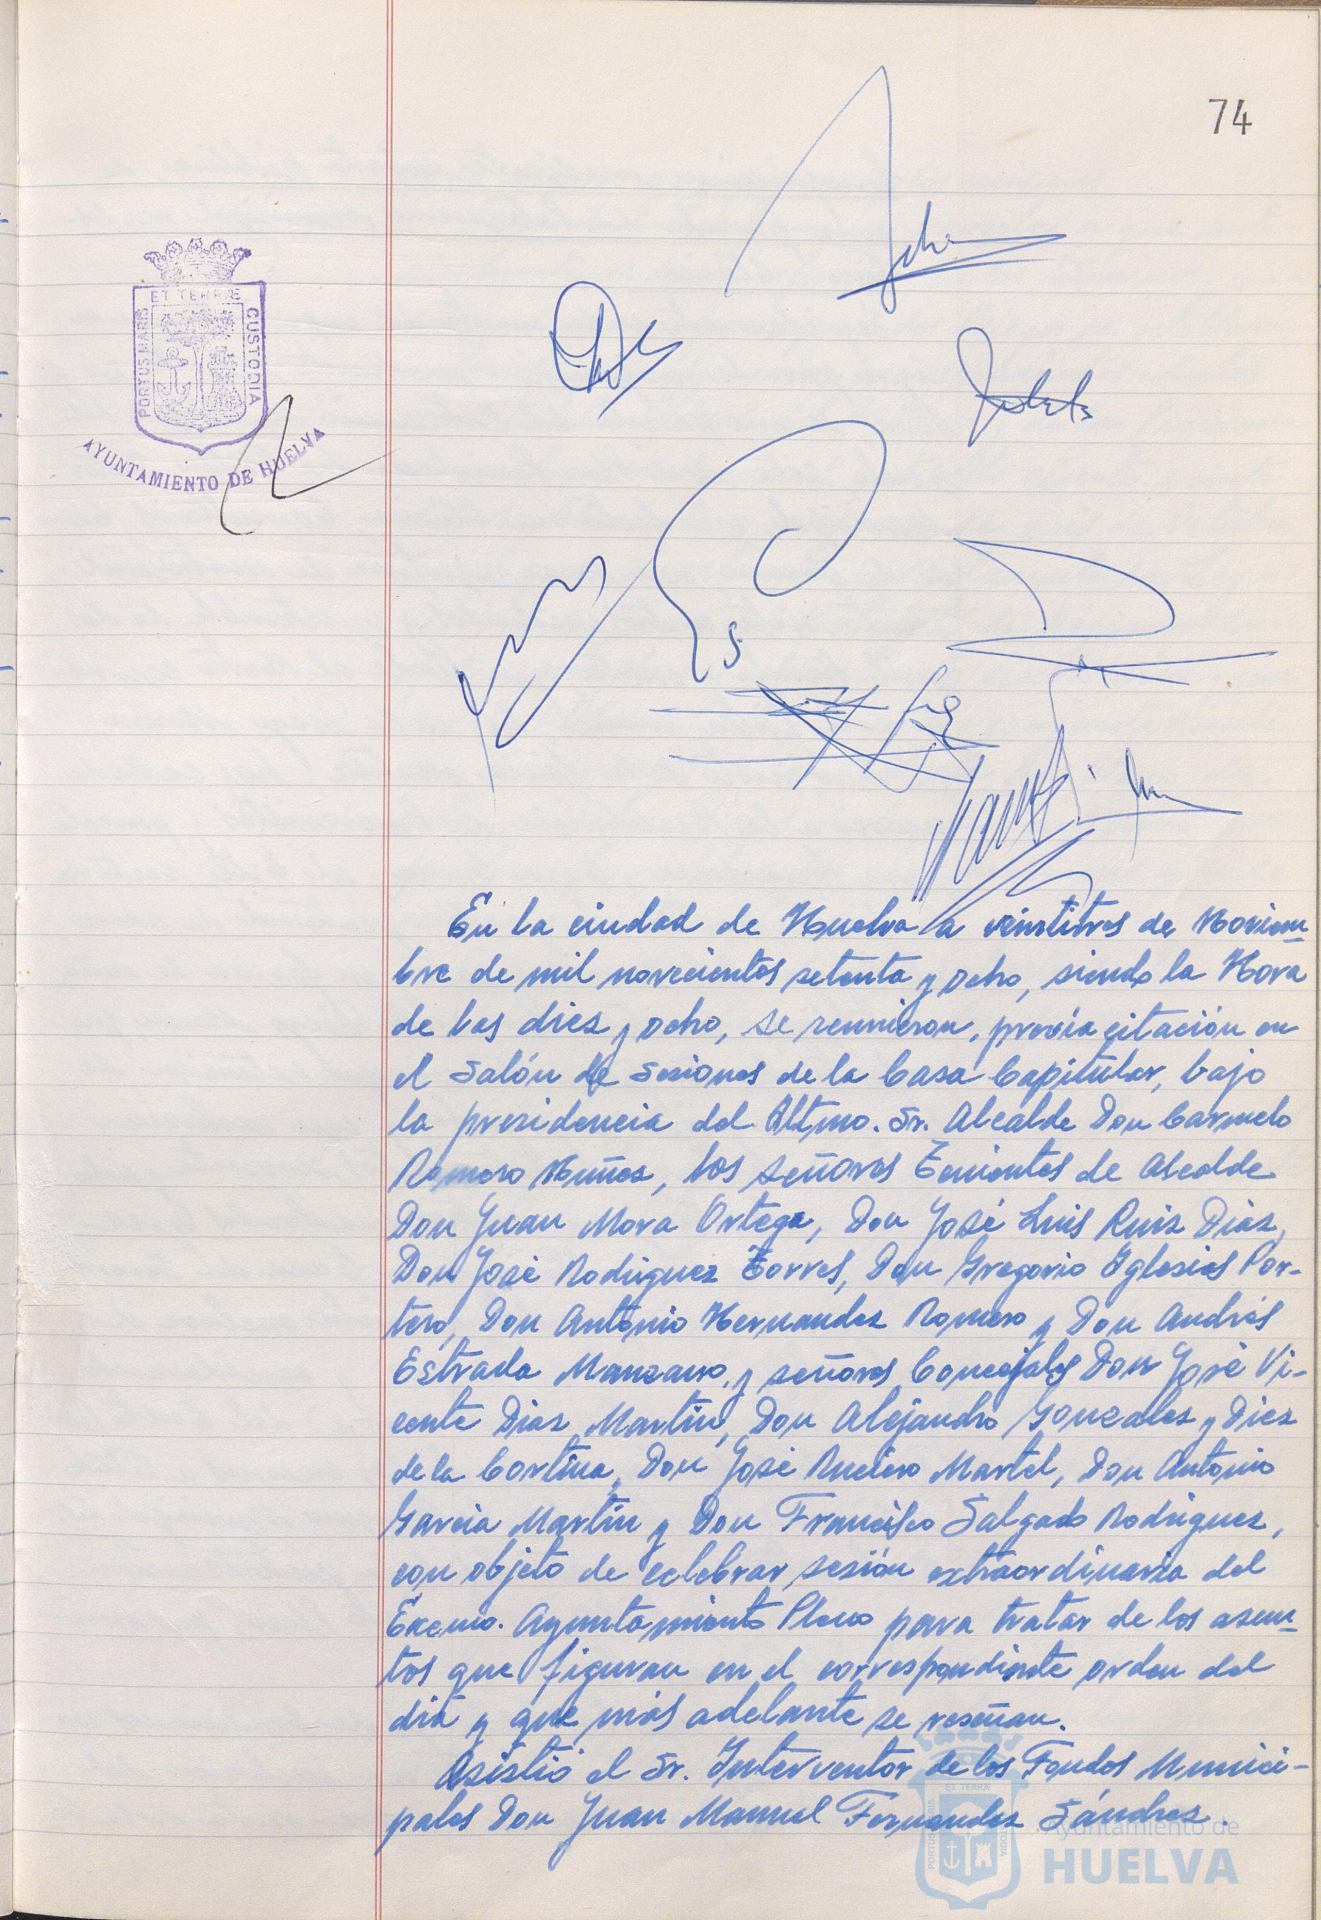 74
ET TERRÆ
PORTUS MARIS
CUSTODIA
AYUNTAMIENTO DE HUELVA
En la ciudad de Huelva a veintitres de Noviem-
bre de mil novecientos setenta y ocho, siendo la Hora
de las diez y ocho, se reunieron, previa citación en
el Salón de Sesiones de la Casa Capitular, bajo
la presidencia del Iltmo. Sr. Alcalde Don Carmelo
Romero Muñoz, los señores Tenientes de Alcalde
Don Juan Mora Ortega, Don José Luis Ruiz Diaz,
Don José Rodriguez Torres, Don Gregorio Iglesias Por-
tero, Don Antonio Hernandez Romero y Don Andrés
Estrada Manzano, y señores Concejales Don José Vi-
cente Diaz Martin, Don Alejandro Gonzalez y Diez
de la Cortina, Don José Ruciero Martel, Don Antonio
Garcia Martin y Don Francisco Salgado Rodriguez,
con objeto de celebrar sesión extraordinaria del
Excmo. Ayuntamiento Pleno para tratar de los asun-
tos que figuran en el correspondiente orden del
dia y que más adelante se reseñan.
Asistió el Sr. Interventor de los Fondos Munici-
pales Don Juan Manuel Fernandez Sández.
ET TERRÆ
PORTUS MARIS
CUSTODIA
Ayuntamiento de
HUELVA